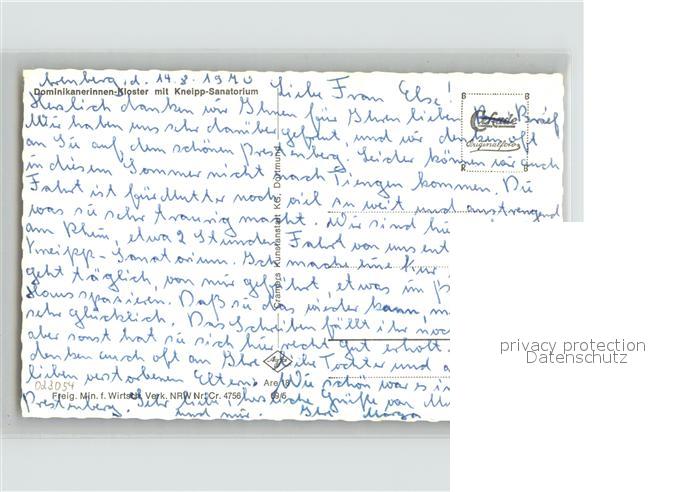 Arenberg, d. 14.8.1970
Dominikanerinnen-Kloster mit Kneipp-Sanatorium
Liebe Frau Else!
Herzlich danken wir Ihnen für Ihren lieben Brief
Wir haben uns sehr darüber gefreut, und wir denken oft
an Sie auf dem schönen Prestenberg. Leider können wir auch
in diesem Sommer nicht nach Tiengen kommen. Die
Fahrt ist für Mutter noch viel zu weit und anstrengend
was sie sehr traurig macht. Wir sind hier
am Rhein, etwa 2 Stunden Fahrt von uns ent
Kneipp-Sanatorium. Ich mache eine Kur
geht täglich, von mir geführt, etwas im
Haus spazieren. Daß sie das wieder kann,
sehr glücklich. Das Schreiben fällt ihr noch
aber sonst hat sie sich hier recht gut erholt.
denken auch oft an Ihre liebe Tochter und
lieben verstorbenen Eltern. Wie schön war es
Prestenberg. Sehr liebe, herzliche Grüße von
und mir. Ihre
Crämers Kunstanstalt KG, Dortmund
Cekade
Originalfoto
Agfa
023054
Are 18
Freig. Min. f. Wirtsch. Verk. NRW Nr. Cr. 4756
69/5
privacy protection
Datenschutz